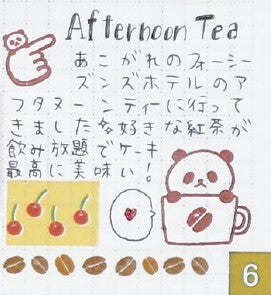 Afternoon Tea
あこがれのフォーシー
ズンズホテルのア
フタヌーンティーに行って
きました♪好きな紅茶が
飲み放題でケーキ
最高に美味い!
6